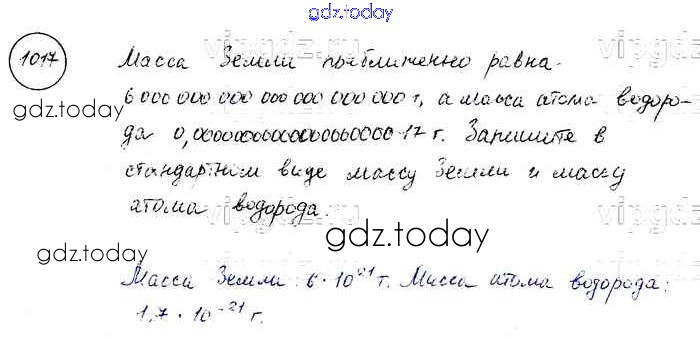 gdz.today
1017
Масса Земли приближенно равна
6 000 000 000 000 000 000 000 т, а масса атома водоро-
gdz.today
да 0,00000000000000000000 17 г. Запишите в
стандартном виде массу Земли и массу
атома водорода.
gdz.today
gdz.today
Масса Земли: 6 · 10²¹ т. Масса атома водорода:
1,7 · 10⁻²¹ г.